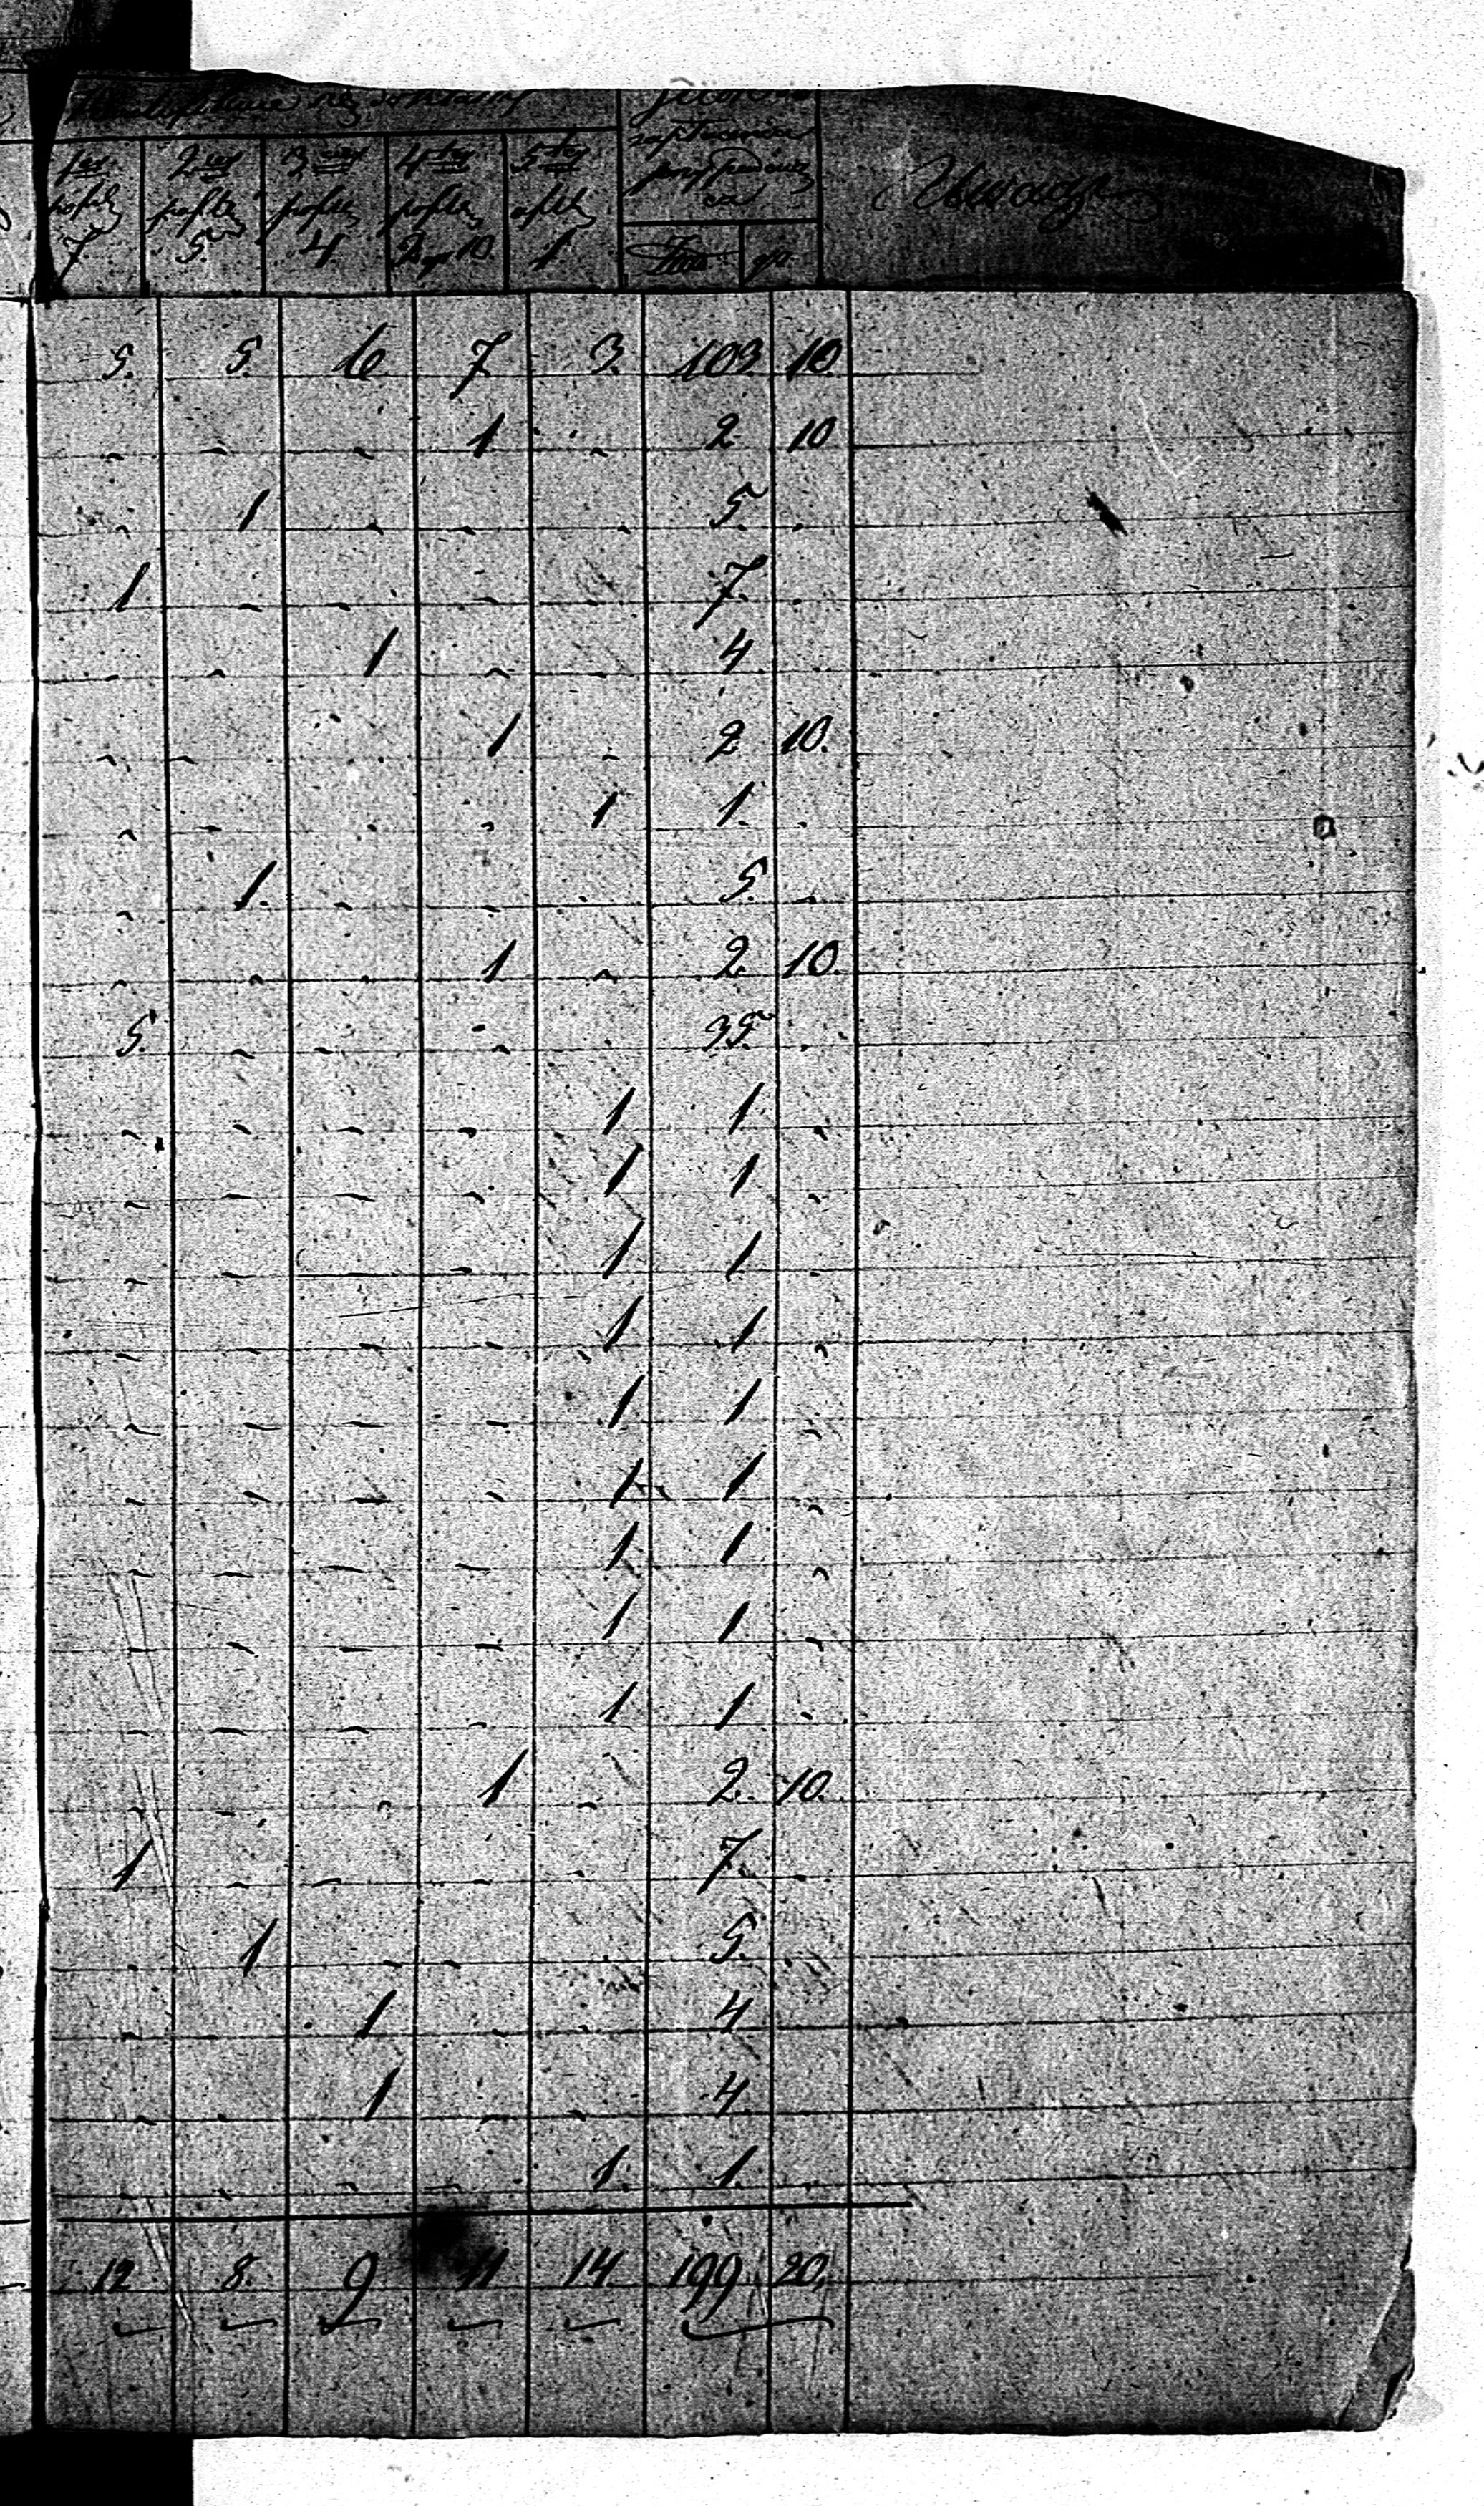 7 5 4 2 gr 10 1 Zło gr.
5. 5. 6 7 3. 103 10.
- - - 1 - 2 10
- 1 - - - 5. -
1 - - - - 7. -
- - 1 - - 4. -
- - - 1 - 2 10.
- - - - 1 1. -
- 1. - - - 5. -
- - - 1 - 2. 10.
5. - - - - 35. -
- - - - 1 1 -
- - - - 1 1 -
- - - - 1 1 -
- - - - 1 1 -
- - - - 1 1 -
- - - - 1 1 -
- - - - 1 1 -
- - - - 1 1 -
- - - - 1 1 -
- - - 1 - 2. 10.
1 - - - - 7. -
- 1 - - - 5.
- - 1 - - 4
- - 1 - - 4.
- - - - 1. 1. -
12 8. 9 11 14 199 20.